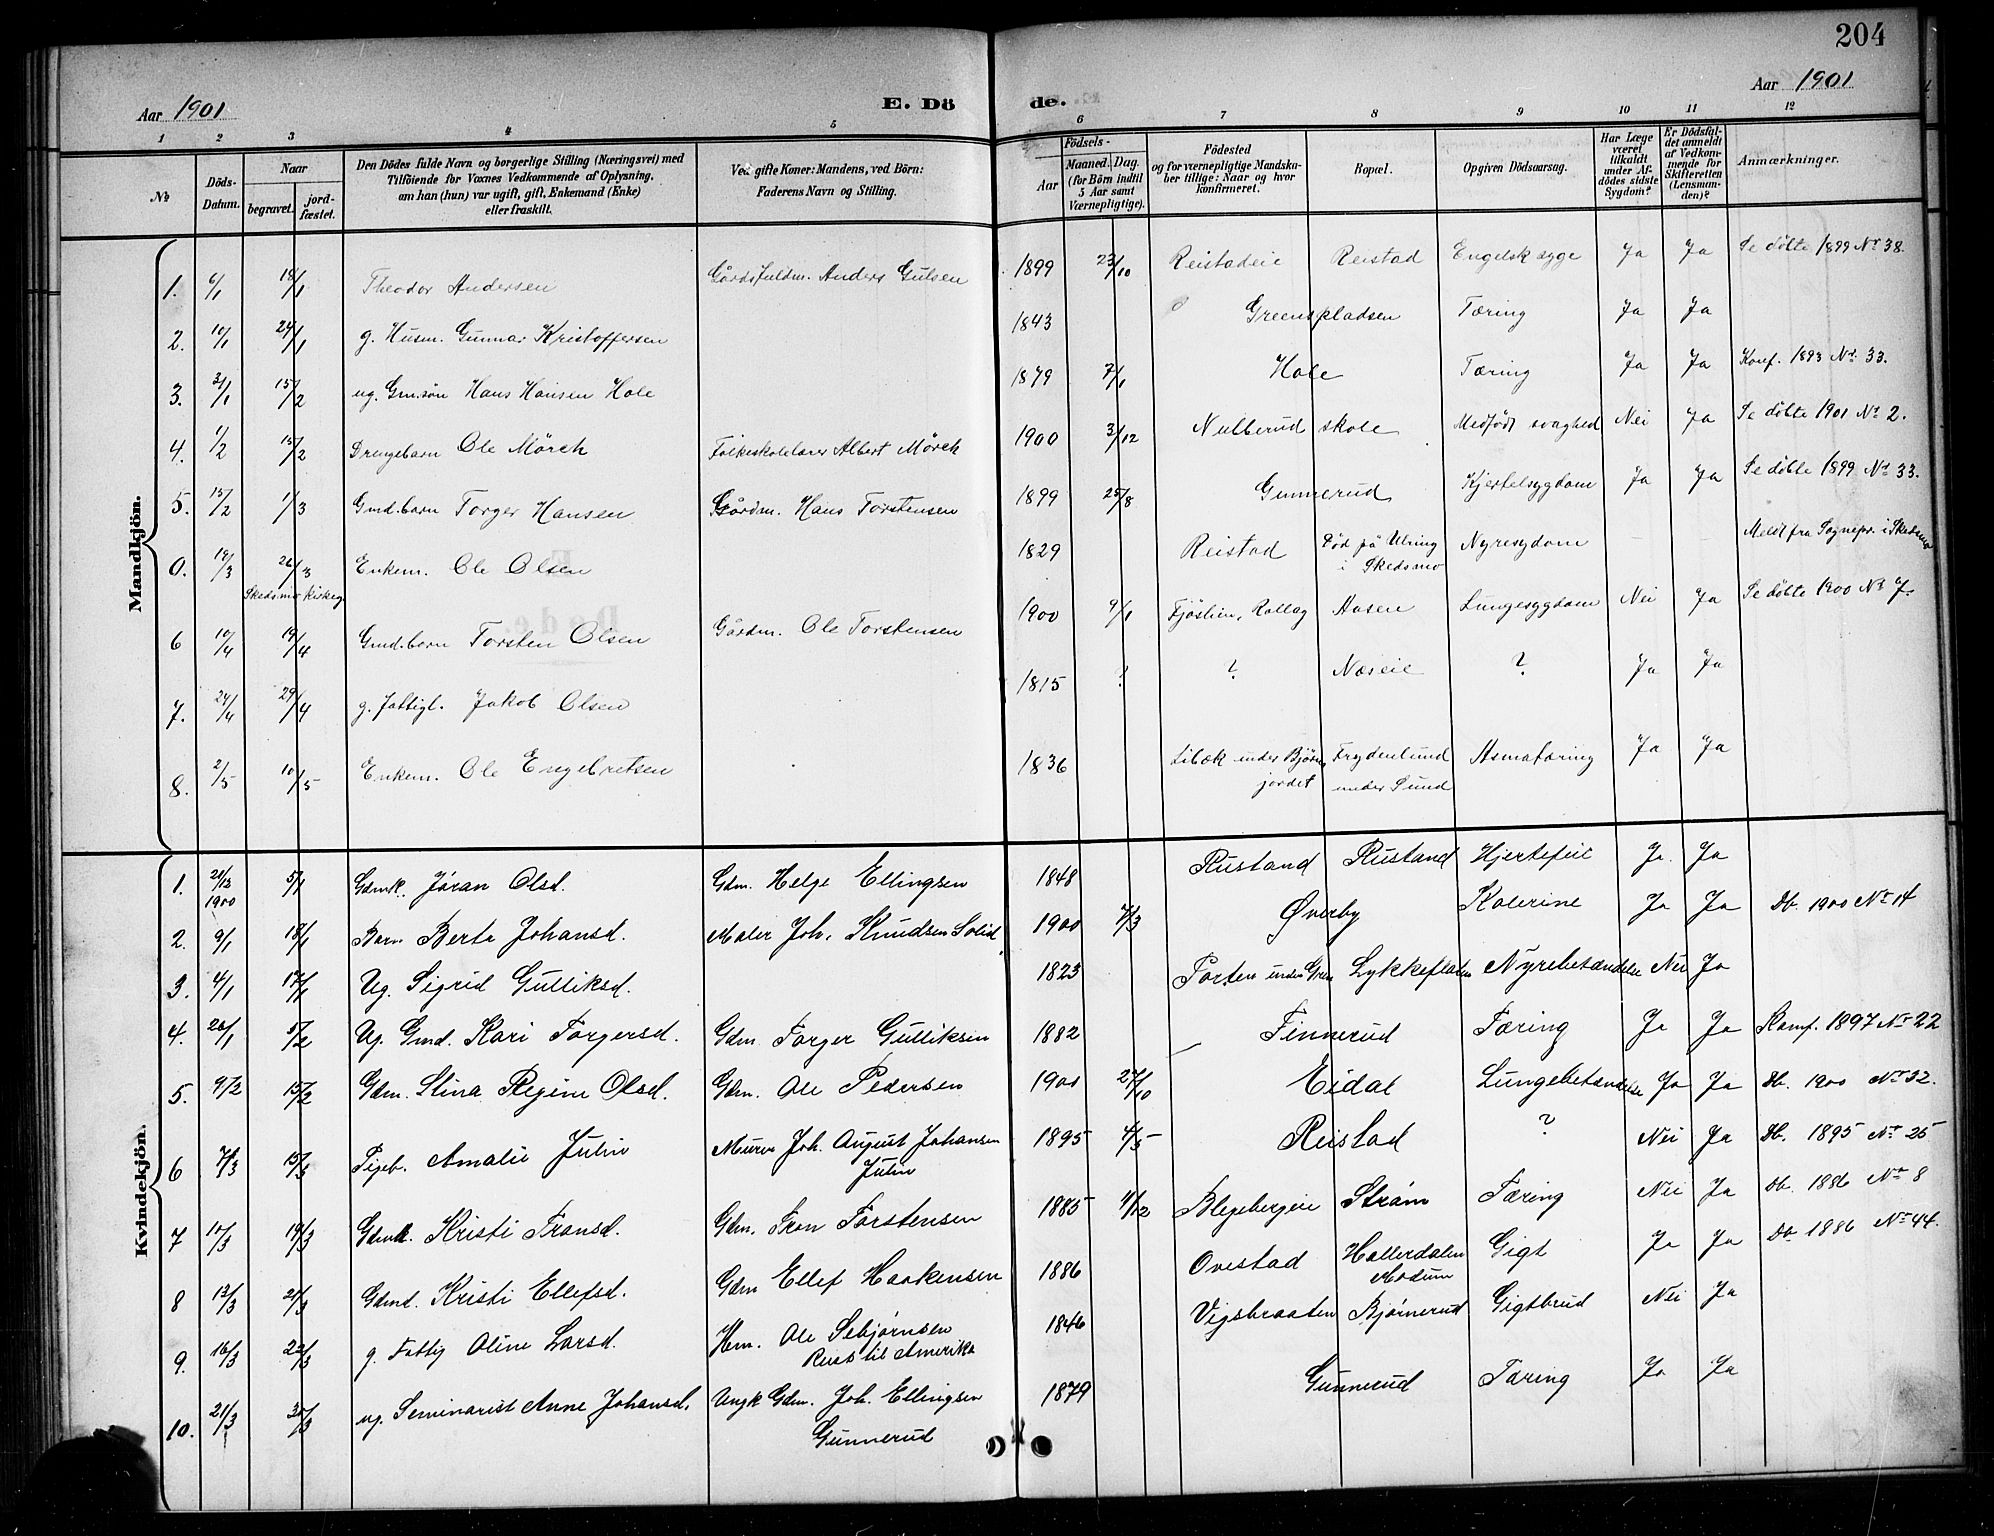 204
Aar 1901
E. Dö
de.
Aar 1901
1 2 3 4 5 6 7 8 9 10 11 12
№
Döds-Datum.
Naar
begravet.
jord-fæstet.
Den Dödes fulde Navn og borgerlige Stilling (Næringsvei) med
Tilföiende for Voxnes Vedkommende af Oplysning,
om han (hun) var ugift, gift, Enkemand (Enke)
eller fraskilt.
Ved gifte Koner: Mandens, ved Börn:
Faderens Navn og Stilling.
Födsels-
Aar
Maaned. Dag.
(for Börn indtil
5 Aar samt
Værnepligtige).
Födested
og for værnepligtige Mandska-
ber tillige: Naar og hvor
konfirmeret.
Bopæl.
Opgiven Dödsaarsag.
Har Læge
været
tilkaldt
under Af-
dödes sidste
Sygdom?
Er Dödsfal-
det anmeldt
af Vedkom-
mende for
Skifteretten
(Lensman-
den)?
Anmærkninger.
Mandkjön.
1. 6/1 18/1 Theodor Andersen Gårdsfuldm. Anders Gulsen 1899 23/10 Reistadeie Reistad Engelsk syge Ja Ja Se døbte 1899 Nr 38.
2. 10/1 24/1 g. Husm. Gunnar Kristoffersen 1843 Greenspladsen Tæring Ja Ja
3. 31/1 15/2 ug. Gm.søn Hans Hansen Hole 1879 7/1 Hole Tæring Ja Ja Konf. 1893 Nr. 33.
4. 1/2 15/2 Drengebarn Ole Mörch Folkeskolelærer Albert Mörch 1900 3/12 Nulberud skole Medfødt svaghed Nei Ja Se døbte 1901 Nr 2.
5. 15/2 1/3 Gmd.barn Torger Hansen Gårdm. Hans Torstensen 1899 25/8 Gunnerud Kjertelsygdom Ja Ja Se døbte 1899 Nr 33.
0. 19/3 26/3 Enkem. Ole Olsen 1829 Reistad Fød på Ulring Nyresygdom – – Meldt fra Sognepr. i Skedsmo
Skedsmo Kirkeg. i Skedsmo
6 10/4 19/4 Gmd.barn Torsten Olsen Gårdm. Ole Torstensen 1900 9/1 Fjøslien, Rollag Aasen Lungesygdom Nei Ja Se døbte 1900 Nr 7.
7. 24/4 29/4 g. fattigl. Jakob Olsen 1815 ? ? Næseie ? Ja Ja
8. 2/5 10/5 Enkem. Ole Engebretsen 1836 Libæk under Bjørn- Frydenlund Asmatæring Ja Ja
jordet under Sund
Kvindekjön.
1. 21/12 5/1 Gdmk. Jøran Olsd. Gdm. Helge Ellingsen 1848 Rustand Rustand Hjertefeil Ja Ja
1900
2. 9/1 18/1 Barn Berta Johansd. Maler Joh. Knudsen Solid 1900 7/3 Øverby Kolerine Ja Ja Db. 1900 Nr 14
3. 4/1 17/1 Ug. Sigrid Gulliksd. 1823 Porten under Gren Lykkefladen Nyrebetændelse Nei Ja
4. 26/1 5/2 Ug. Gmd. Kari Torgersd. Gdm. Torger Gulliksen 1882 Finnerud Tæring Ja Ja Konf. 1897 Nr 22
5. 9/2 15/2 Gdm. Stina Regine Olsd. Gdm. Ole Pedersen 1900 27/10 Eidal Lungebetændelse Ja Ja Db. 1900 Nr 32.
6 7/3 15/3 Pigeb. Amalie Julin Murer Joh. August Johansen 1895 4/5 Reistad ? Nei Ja Db. 1895 Nr 25
Julin
7 10/3 19/3 Gdmk. Kristi Fransd. Gdm. Tron Torstensen 1885 11/12 Blegebergeie Strøm Tæring Nei Ja Db. 1886 Nr 8
8 12/3 21/3 Gdmd. Kristi Ellefsd. Gdm Ellef Haakensen 1886 Ovestad Hallerdalen Gigt Ja Ja Db 1886 Nr 44.
Modum
9. 16/3 22/3 g. Fattig Oline Larsd. Hm. Ole Sebjørnsen 1846 Vigsbraaten Bjørnerud Gigtbrud Nei Ja
Reist til Amerika
10. 21/3 30/3 ug. Seminarist Anne Johansd. Ungk Gdm. Joh. Ellingsen 1879 Gunnerud Tæring Ja Ja
Gunnerud